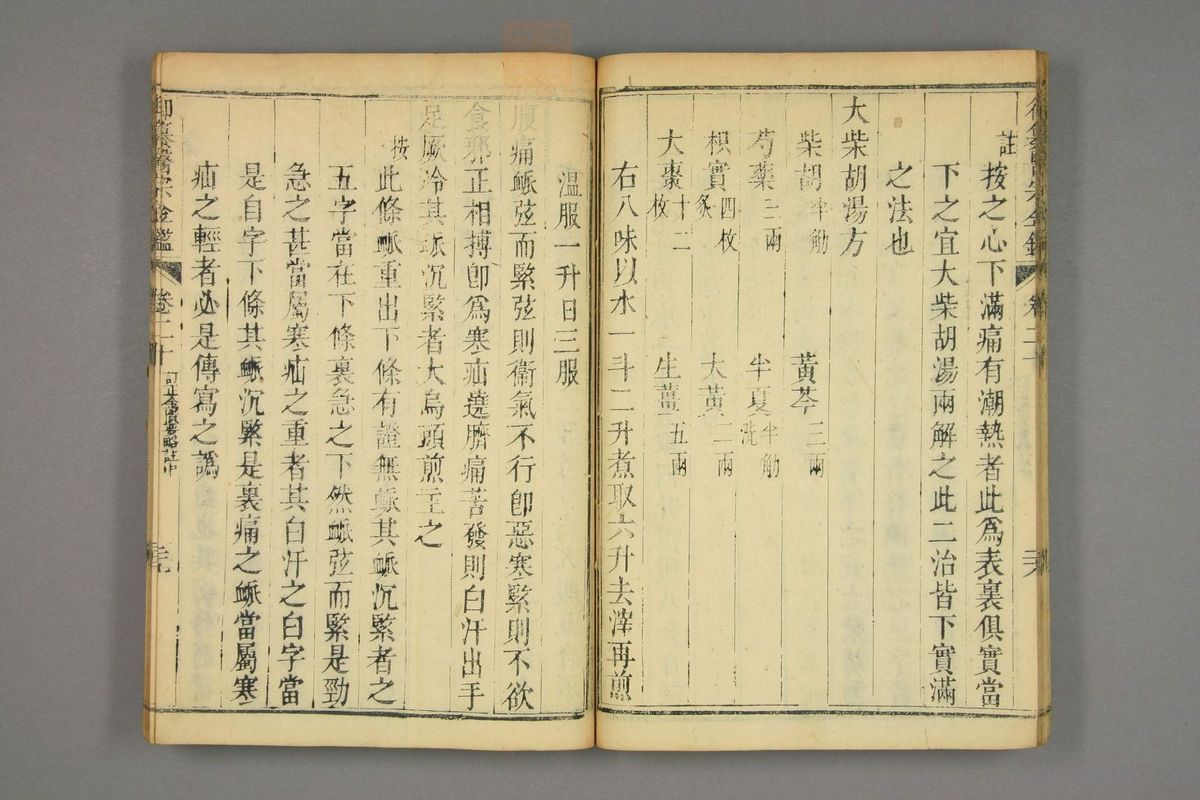 註
按之心下滿痛有潮熱者此爲表裏俱實當
下之宜大柴胡湯兩解之此二治皆下實滿
之法也
大柴胡湯方
柴胡半觔 黃芩三兩
芍藥三兩 半夏半觔洗
枳實四枚炙 大黃二兩
大棗十二枚 生薑五兩
右八味以水一斗二升煮取六升去滓再煎
溫服一升日三服
腹痛䘑弦而緊弦則衞氣不行卽惡寒緊則不欲
食邪正相搏卽爲寒疝遶臍痛苦發則白汗出手
足厥冷其䘑沉緊者大烏頭煎主之
按
此條䘑重出下條有證無䘑其䘑沉緊者之
五字當在下條裏急之下然䘑弦而緊是勁
急之甚當屬寒疝之重者其白汗之白字當
是自字下條其䘑沉緊是裏痛之䘑當屬寒
疝之輕者必是傳寫之譌
御纂醫宗金鑑 卷二十 訂正金匱要略註中